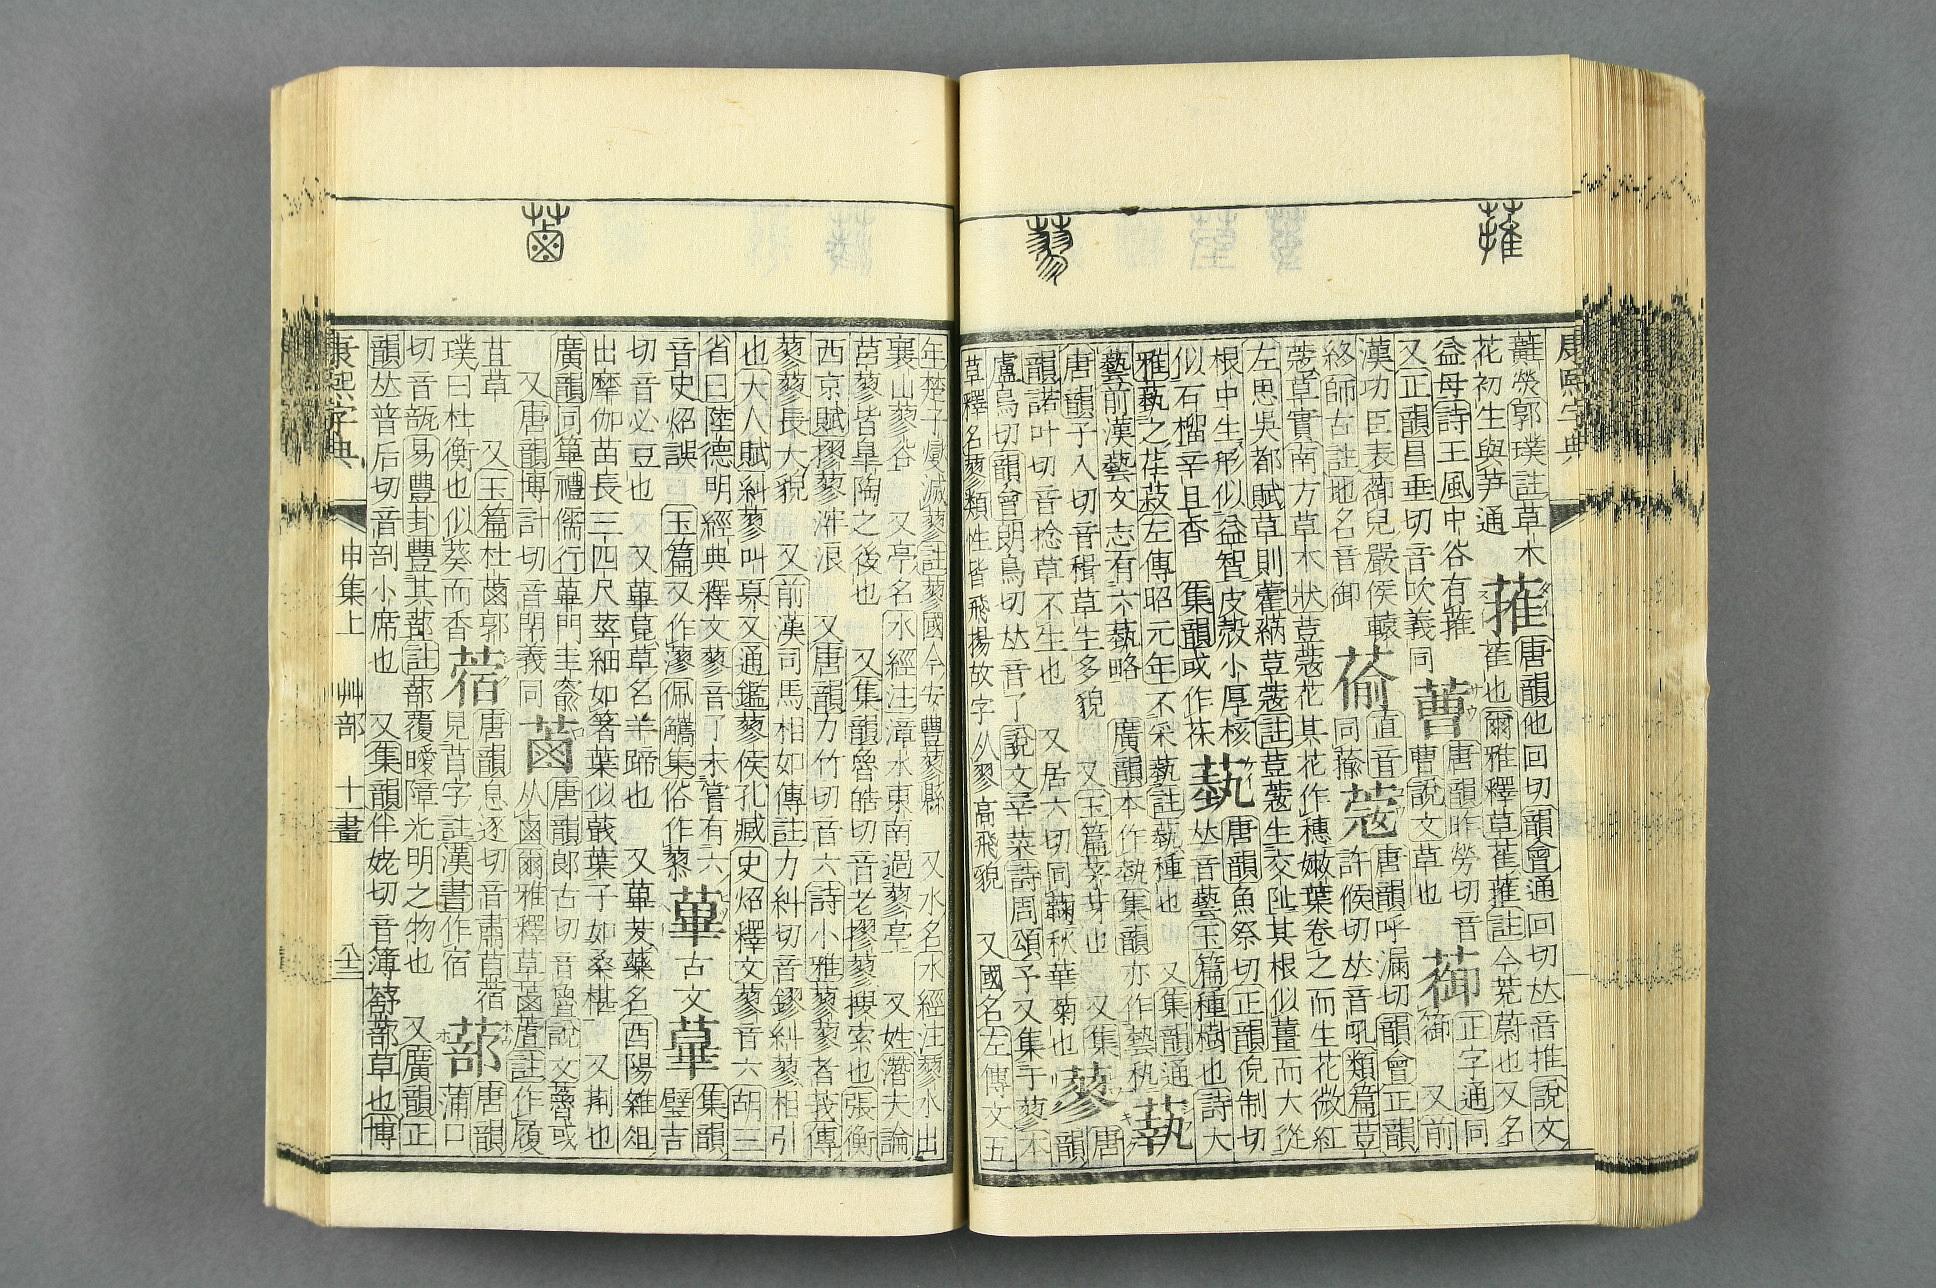 蓷
康熙字典
蘳熒郭璞註草木蓷唐韻他回切韻會通回切𠀤音推說文
花初生與笋通萑也爾雅釋草萑蓷註今茺蔚也又名
益母詩王風中谷有蓷蓸唐韻昨勞切音蓹正字通同
又正韻昌垂切音吹義同曹說文草也䓹又前
漢功臣表蓹兒嚴侯轅直音蔲唐韻呼漏切韻會正韻
終師古註地名音御同許候切𠀤音吼類篇荳
蔲草實南方草木狀荳蔲花其花作穗嫩葉卷之而生花微紅
左思吳都賦草則藿蒳荳蔲註荳蔲生交阯其根似薑而大從
根中生形似益智皮殼小厚核蓺唐韻魚祭切正韻倪制切
似石榴辛且香 集韻或作茠𠀤音藝玉篇種樹也詩大
雅蓺之荏菽左傳昭元年不采蓺註蓺種也 又集韻通
藝前漢藝文志有六蓺略 廣韻本作埶集韻亦作藝秇蓻
唐韻子入切音楫草生多貌 又玉篇茅芽也 又集
韻諾叶切音捻草不生也 又居六切同蘜秋華菊也蓼唐韻
蓼
盧鳥切韻會朗鳥切𠀤音了說文辛菜詩周頌予又集于蓼本
草釋名蓼類性皆飛揚故字从翏高飛貌 又國名左傳文五
年楚子燮滅蓼註蓼國今安豐蓼縣 又水名水經注蓼水出
襄山蓼谷 又亭名水經注漳水東南過蓼亭 又姓潛夫論
莒蓼皆皐陶之後也 又集韻魯皓切音老摎蓼搜索也張衡
西京賦摎蓼浶浪 又唐韻力竹切音六詩小雅蓼蓼者莪傳
蓼蓼長大貌 又前漢司馬相如傳註力糾切音鏐糾蓼相引
也大人賦糾蓼叫奡又通鑑蓼侯孔臧史炤釋文蓼音六胡三
省曰陸德明經典釋文蓼音了未嘗有六蓽古文集韻
音史炤誤 玉篇又作佩觿集俗作壁吉
切音必豆也 又蓽蒠草名羊蹄也 又蓽茇藥名酉陽雜俎
出摩伽苗長三四尺莖細如箸葉似蕺葉子如桑椹 又荆也
蓾
廣韻同篳禮儒行蓽門圭窬蓾唐韻郎古切音魯說文䔑或
又唐韻博計切音閉義同从鹵爾雅釋草蓾蔖註作履
苴草 又玉篇杜蓾郭蓿唐韻息逐切音肅苜蓿蔀唐韻
璞曰杜衡也似葵而香見苜字註漢書作宿蒲口
切音瓿易豐卦豐其蔀註蔀覆曖障光明之物也 又廣韻正
韻𠀤普后切音剖小席也 又集韻伴姥切音簿蔀草也博
康熙字典 申集上 艸部 十一畫